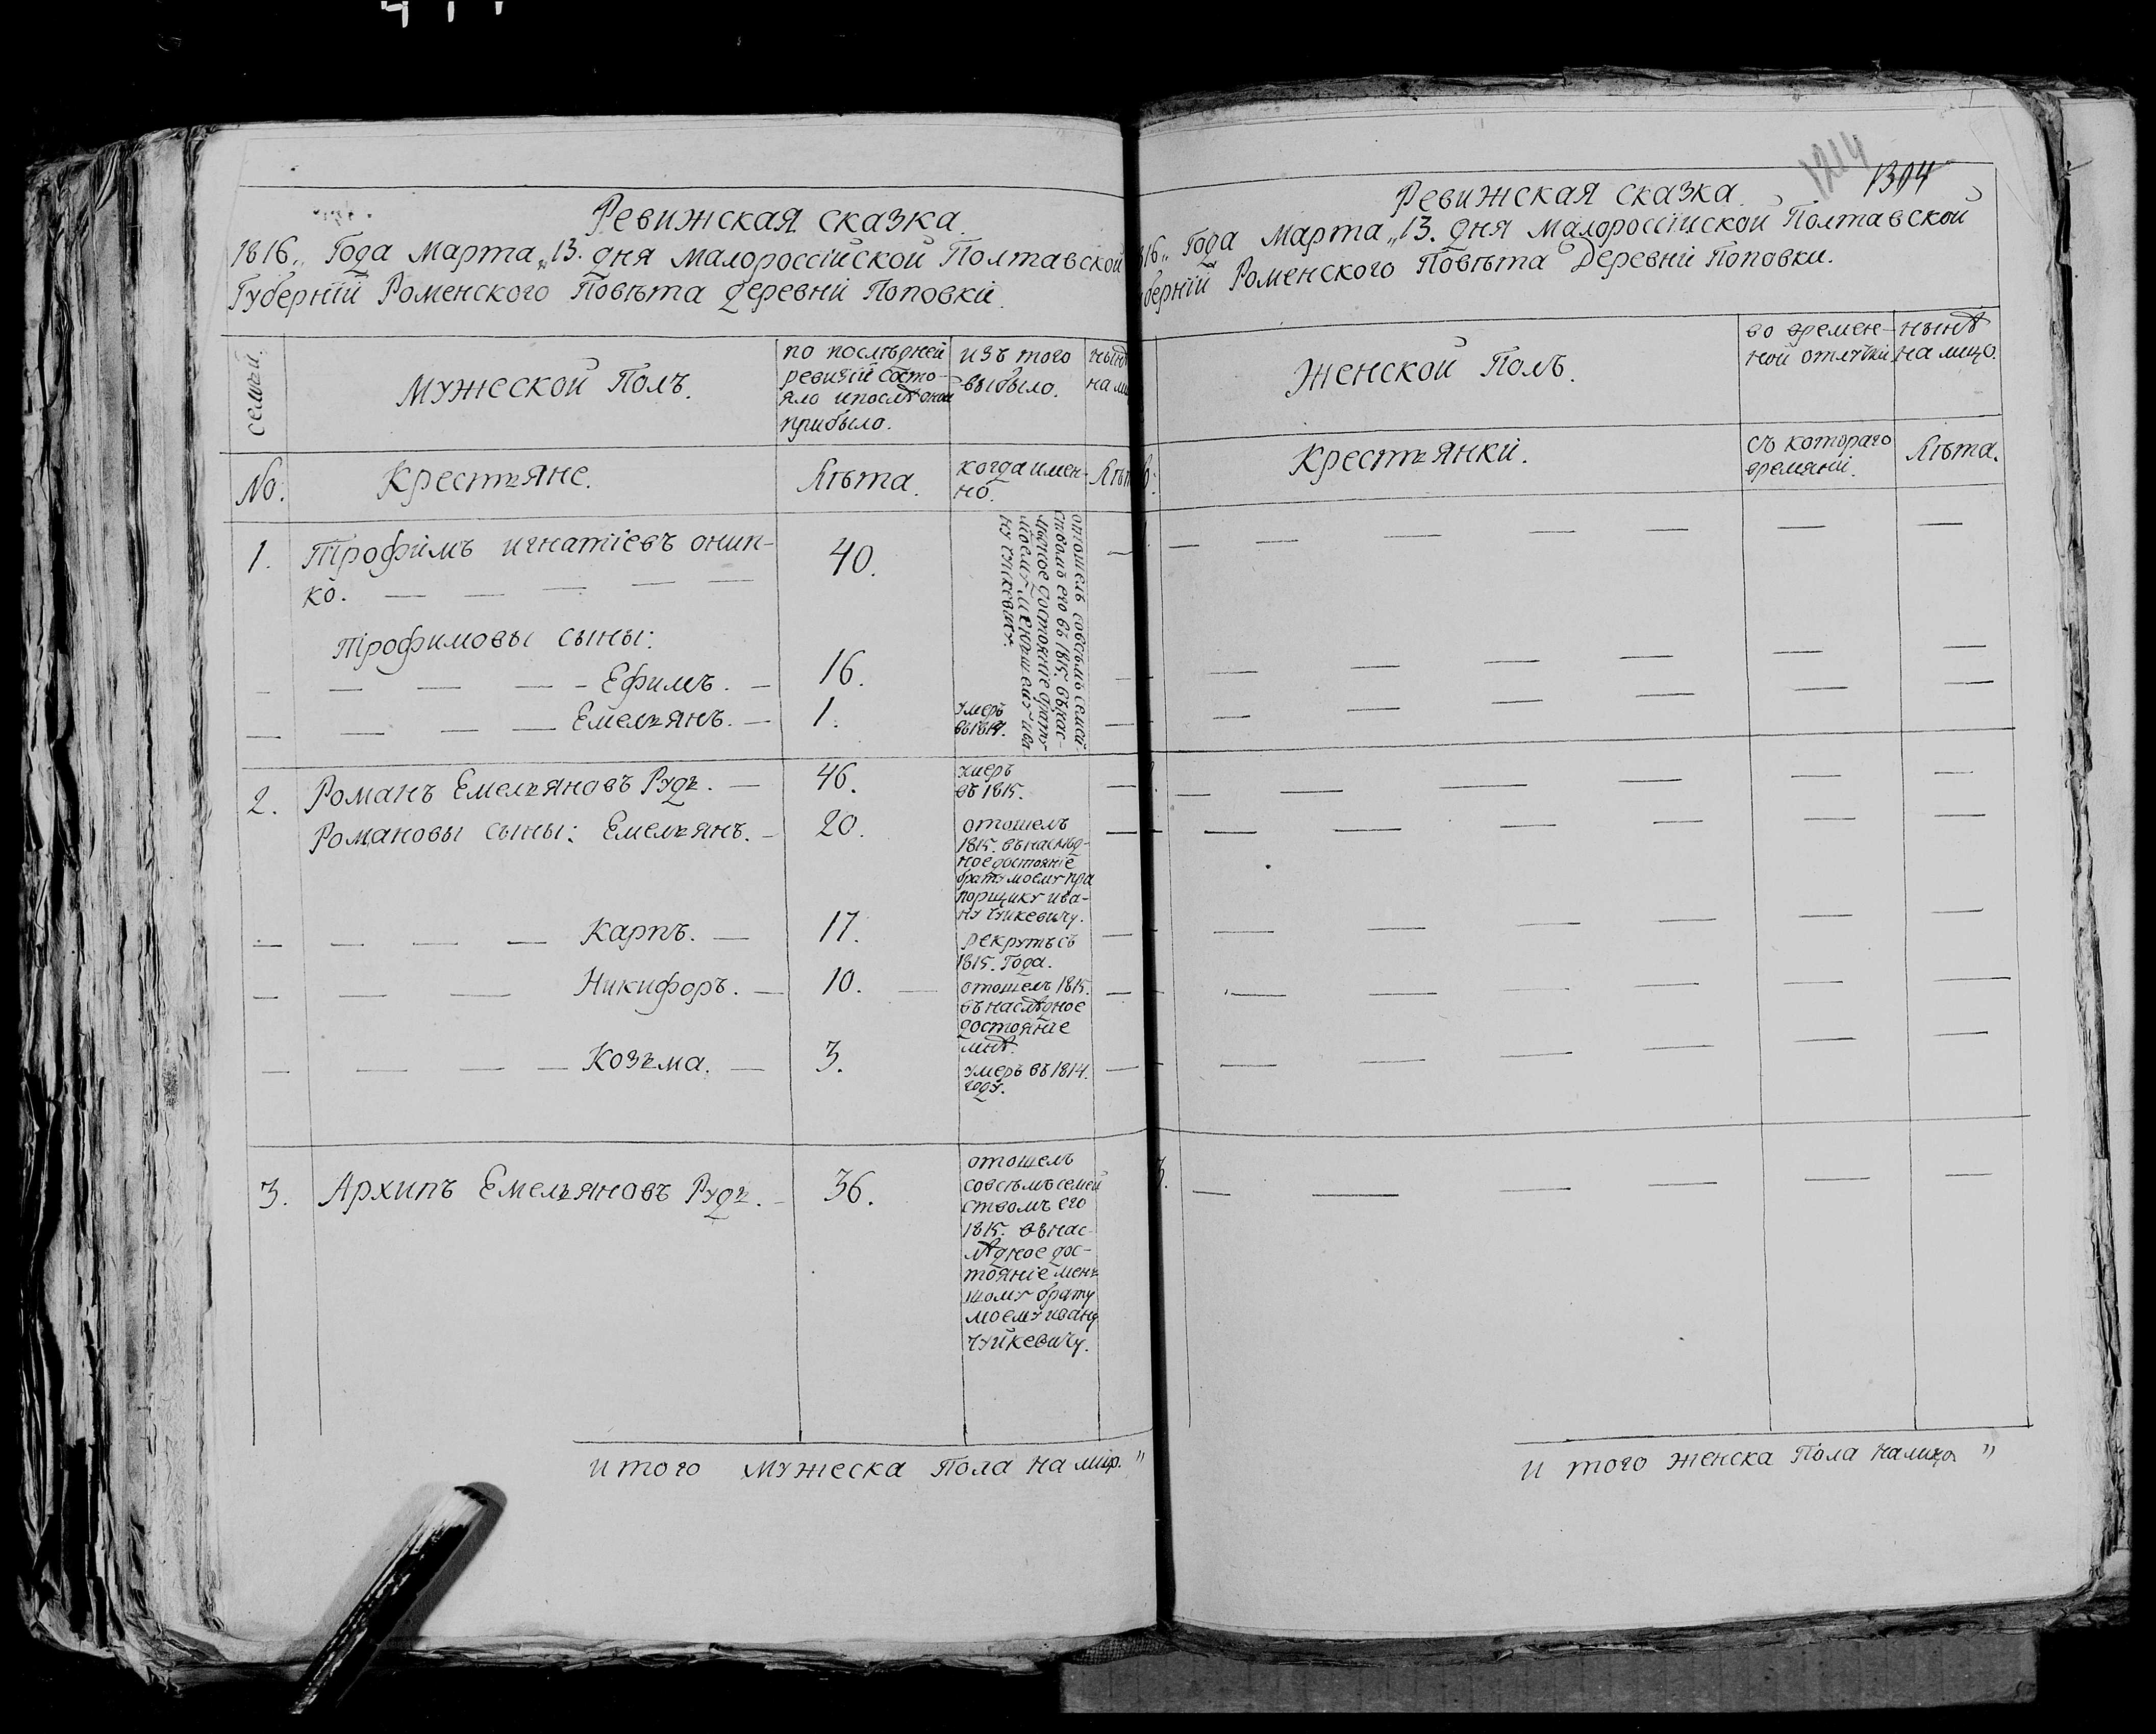 Ревижская сказка.
1816„ Года Марта „13. дня Малороссійской Полтавской
Губерніи Роменского Повѣта деревни Поповки.
семьи
Мужеской Полъ.
по послѣдней
ревизіи состо-
яло и послѣ оной
прибыло.
изъ того
выбыло.
No.
Крестьяне.
Лѣта.
когда имен-
но.
1. Трофимъ игнатіевъ онип-
ко. 40.
отошелъ совсѣмъ семей-
ствомъ его въ 1815. въ нас-
лѣдное достояніе брату
моему меньшему ива-
ну чуйкевичу.
Трофимовы сыны:
Ефимъ. 16.
Емельянъ. 1. умеръ
въ 1814.
2. Романъ Емельяновъ Рудь. 46. умеръ
въ 1815.
Романовы сыны: Емельянъ. 20. отошелъ
1815. въ наслѣд-
ное достояніе
брату моему пра
порщику ива-
ну чуйкевичу.
Карпъ. 17. рекрутъ съ
1815. Года.
Никифоръ. 10. отошелъ 1815.
въ наслѣдное
достояніе
мнѣ.
Козьма. 3. умеръ въ 1814.
году.
3. Архипъ Емельяновъ Рудь. 36. отошелъ
совсѣмъ семей
ствомъ его
1815. въ нас-
лѣдное дос-
тояніе мень
шому брату
моему ивану
чуйкевичу.
и того мужеска Пола на лицо. "
1304
Ревижская сказка.
16„ Года Марта „13. дня Малороссійской Полтавской
берніи Роменского Повѣта Деревни Поповки.
Женской Полъ.
во времен-
ной отлучки
нынѣ
на лицо.
Крестьянки.
съ котораго
времяни.
Лѣта.
3.
и того женска Пола на лицо "